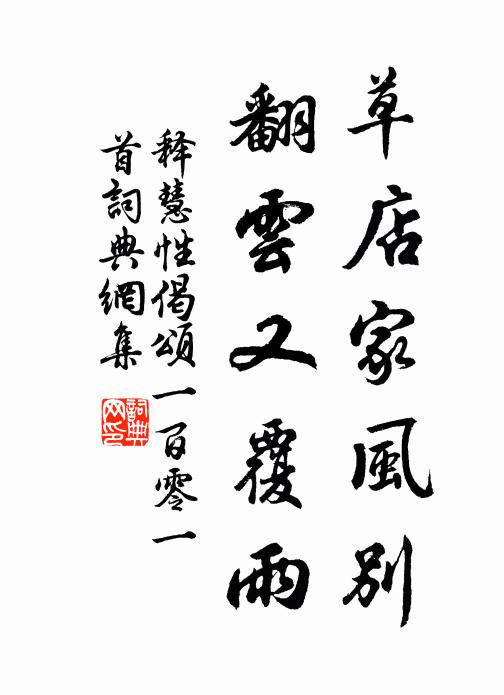 草店家風别
翻雲又覆雨
释慧性偈頌一百零一
首詞典網集
詞典
网印